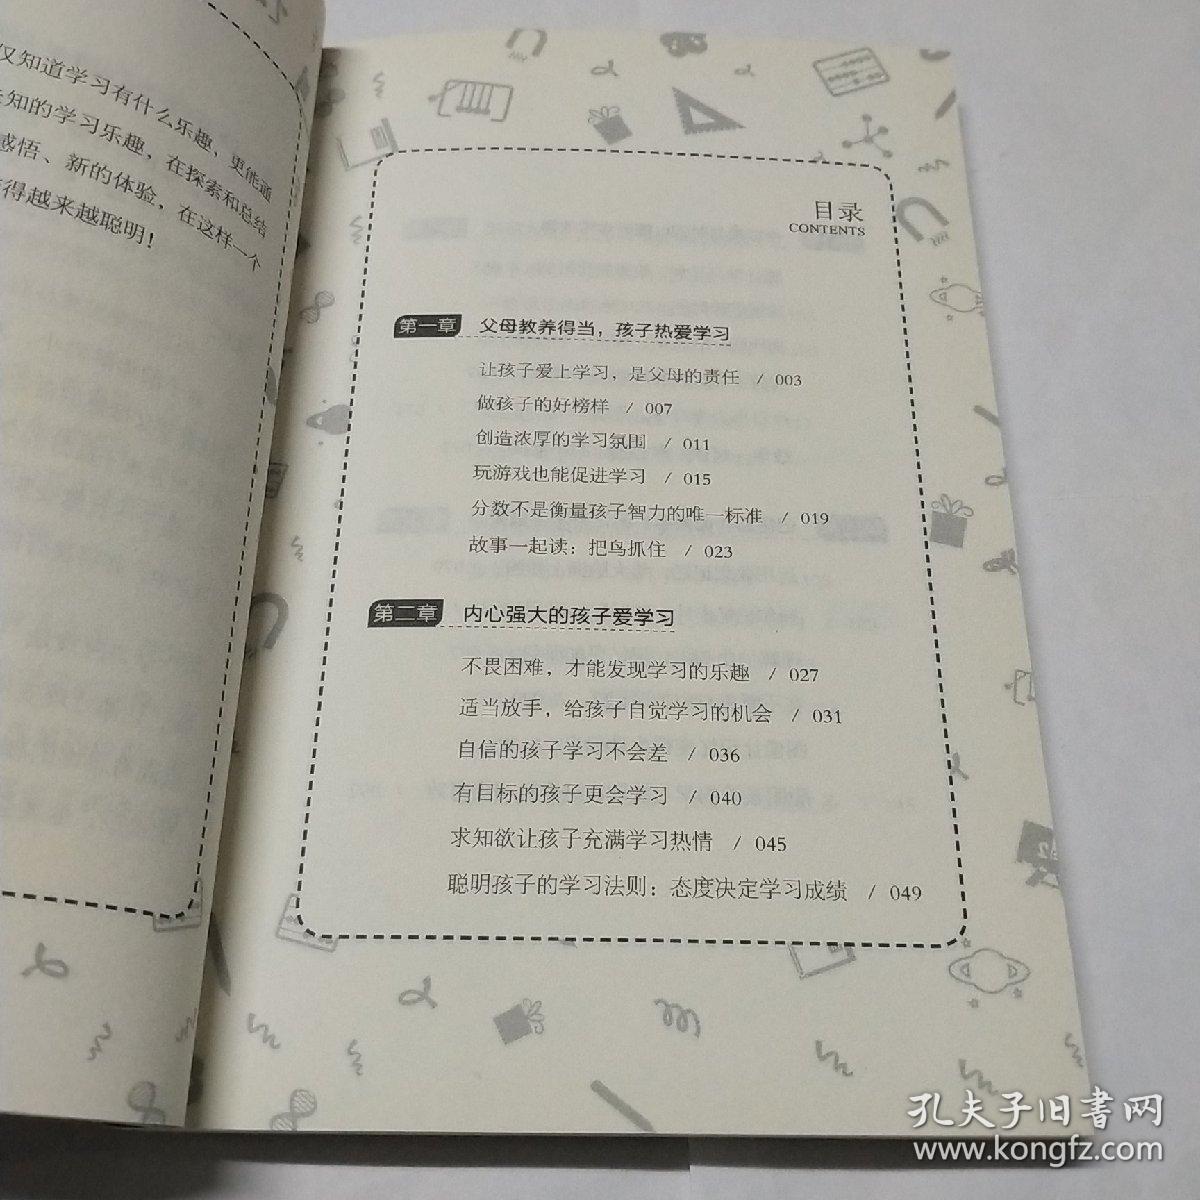 仅知道学习有什么乐趣、更能通
知的学习乐趣，在探索和总结
感悟、新的体验，在这样一个
得越来越聪明！
目录
CONTENTS
第一章 父母教养得当，孩子热爱学习
让孩子爱上学习，是父母的责任 / 003
做孩子的好榜样 / 007
创造浓厚的学习氛围 / 011
玩游戏也能促进学习 / 015
分数不是衡量孩子智力的唯一标准 / 019
故事一起读：把鸟抓住 / 023
第二章 内心强大的孩子爱学习
不畏困难，才能发现学习的乐趣 / 027
适当放手，给孩子自觉学习的机会 / 031
自信的孩子学习不会差 / 036
有目标的孩子更会学习 / 040
求知欲让孩子充满学习热情 / 045
聪明孩子的学习法则：态度决定学习成绩 / 049
孔夫子旧书网
www.kongfz.com